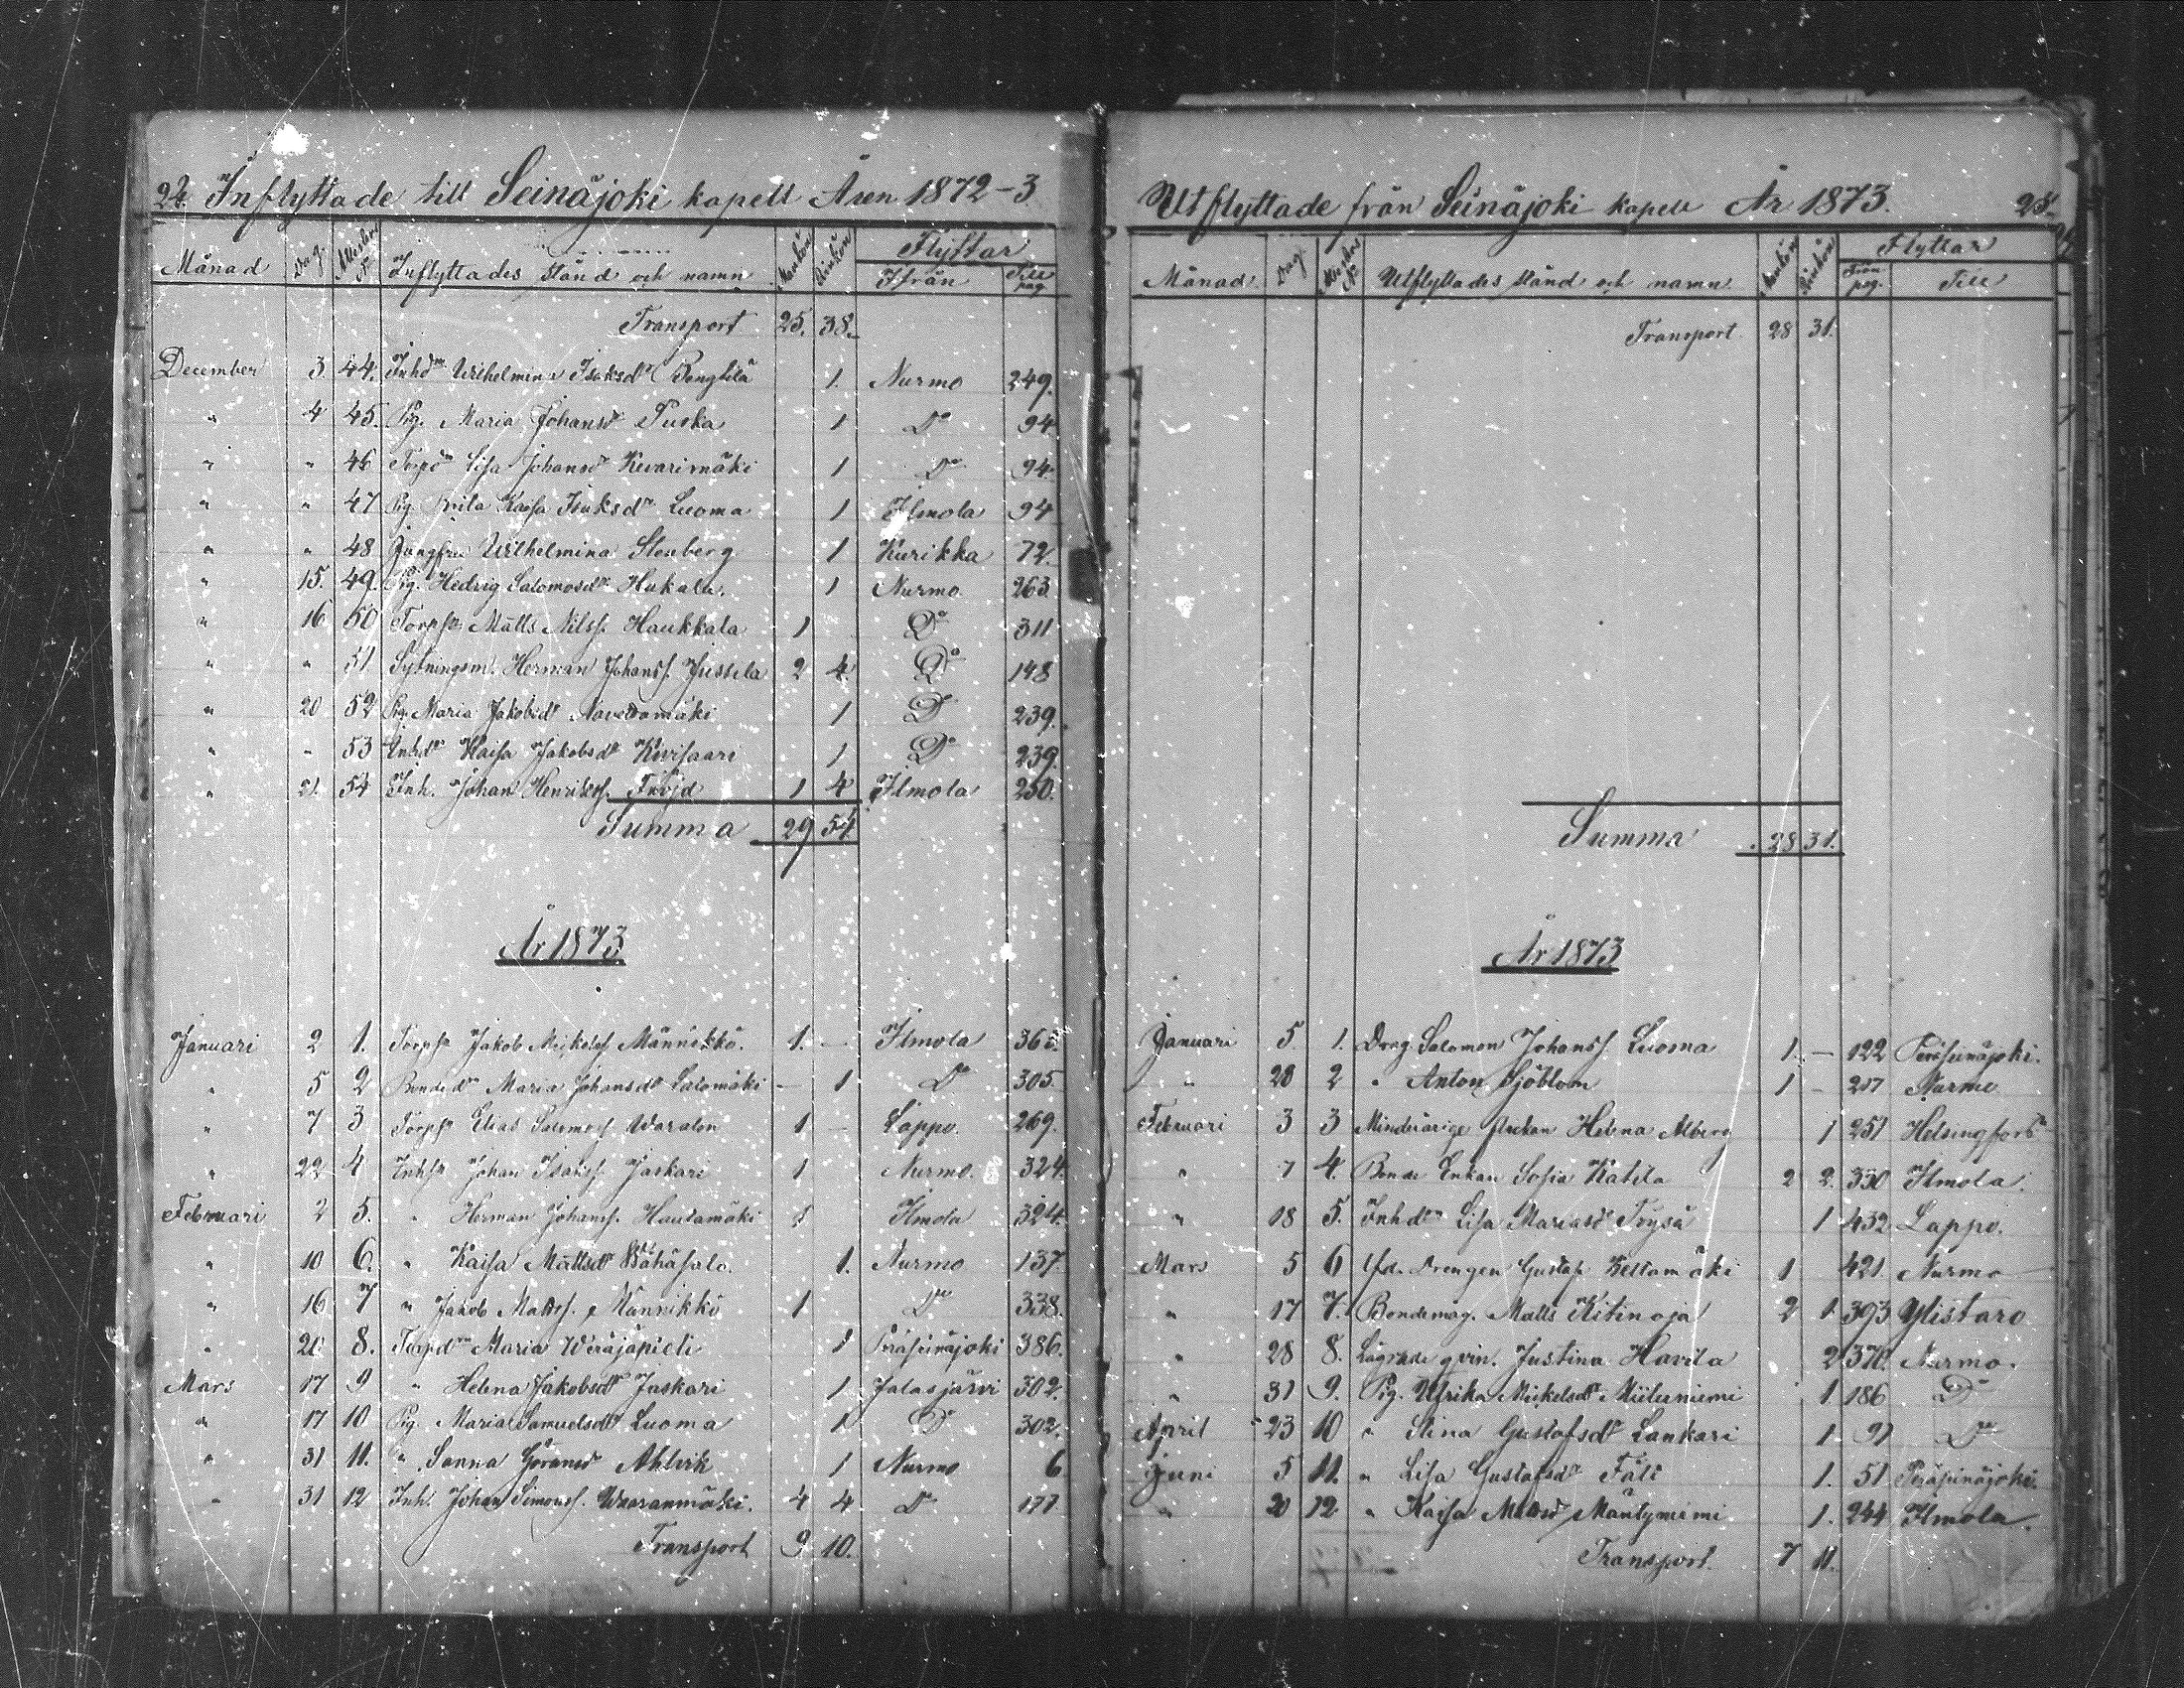 24. Inflyttade till Seinäjoki kapell Åren 1872-3
Månad Dag Attestens № Inflyttades stånd och namn Mankön Qvinkön Flyttar
Ifrån Till pag.
Transport 25. 38.
December 3 44. Inhdr Wilhelmina Isaksdr 1. Nurmo 249.
" 4 45. Pig. Maria Johansdr Puska 1 Do 94
" " 46 Torpdr Lisa Johansdr Kuvarimäki 1 Do 94.
" " 47 Pig. Brita Kaisa Isaksdr Luoma 1 Ilmola 94
" " 48 Jungfru Wilhelmina Stenberg 1 Kurikka 72.
" 15. 49. Pig. Hedvig Salomosdr Hakala. 1 Nurmo 263
" 16 50 Torpsn Matts Nilss. Haukkala 1 Do 311
" " 51 Sytningsm. Herman Johanss. Jussila 2 4 Do 148
" 20 52 Pig. Maria Jakobsdr 1 Do 239.
" " 53 Inhdr Kaisa Jakobsdr Kivisaari 1 Do 239.
" 21. 54 Inh. Johan Henrikss. Fröjd 1 4 Ilmola 250.
Summa 29 54.
År 1873
Januari 2 1. Torpsn Jakob Mickelss Männikkö. 1. — Ilmola 365.
" 5 2 Bondedr Maria Johansdr Salomäki — 1 Do 305.
" 7 3 Torpsn Elias Salomoss Waralon 1 — Lappo. 269.
" 22 4 Inhsn Johan Isakss. Jaskari 1 Nurmo. 324.
Februari 2 5. " Herman Johanss. Hautamäki 1 Ilmola 324.
" 10 6. " Kaisa Mattsdr Wähäsalo. 1. Nurmo 137.
" 16 7 " Jakob Matss. Männikkö 1 Do 338.
" 20 8. Torpdr Maria Weräjäpieli 1 Peräseinäjoki 386.
Mars 17 9 " Helena Jakobsdr Jaskari 1 Jalasjärvi 302.
" 17 10 Pig. Maria Samuelsdr Luoma 1 Do 302.
" 31 11. " Sanna Göransdr Ahlvik 1 Nurmo 6
" 31 12 Inh. Johan Simonss. Waaranmäki. 4 4 Do 177
Transport 9 10.
Utflyttade från Seinäjoki kapell År 1873. 25.
Månad Dag Attestens № Utflyttades stånd och namn Mankön Qvinkön Flyttar
Från pag. Till
Transport 28 31.
Summa 28 31.
År 1873
Januari 5 1. Dreng. Salomon Johanss. Luoma 1. — 122 Peräseinäjoki.
" 28 2 " Anton Sjöblom 1 — 217 Nurmo
Februari 3 3 Minderåriga flickan Helena Alberg 1 251 Helsingfors
" 7 4. Bonde Enkan Sofia Katila 2 2. 330 Ilmola.
" 18 5. Inhdr Lisa Mariasdr Töysä 1 432 Lappo.
Mars 5 6 Drengen Gustaf Keltamäki 1 421 Nurmo
" 17 7. Bondemåg. Matts Kitinoja 2 1. 393 Ylistaro
" 28 8. Lägrade qvin. Justina Havila 2 370. Nurmo.
" 31 9. Pig. Ulrika Mickelsdr Miiluniemi 1. 186 Do
April 23 10 " Stina Gustafsdr Lankari 1. 97 Do
Juni 5 11. " Lisa Gustafsdr Fält 1. 51 Peräseinäjoki.
" 20 12 " Kaisa Mattsdr Mäntyniemi 1. 244 Ilmola.
Transport. 7 11.